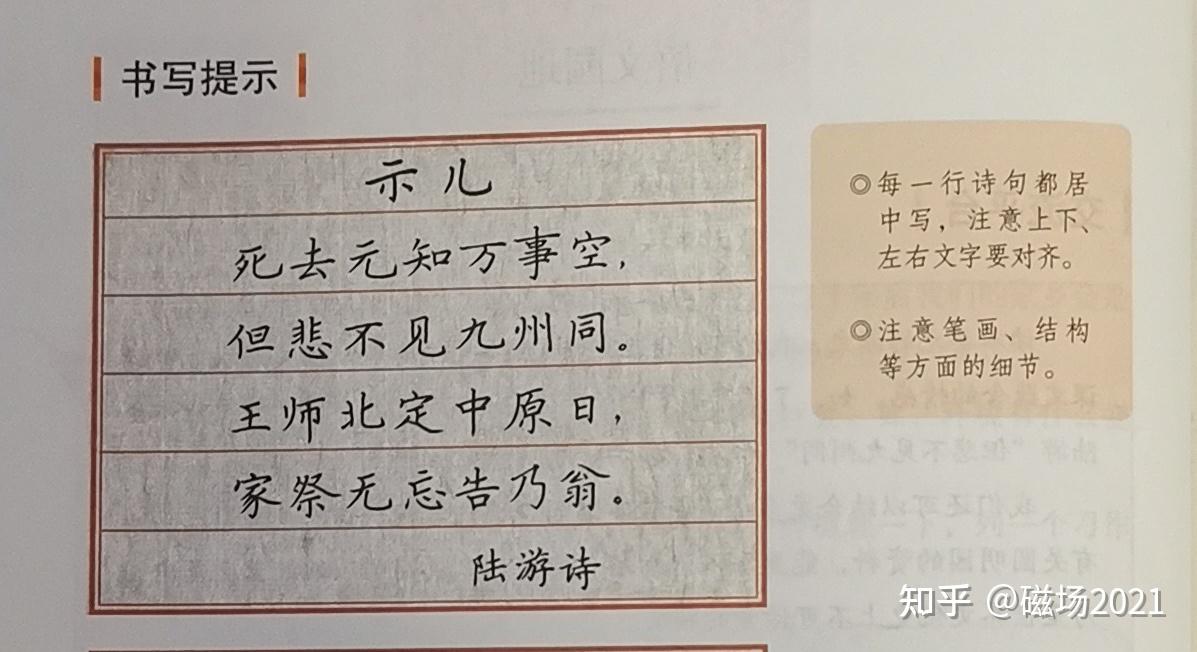 书写提示
示儿
死去元知万事空，
但悲不见九州同。
王师北定中原日，
家祭无忘告乃翁。
陆游诗
◎每一行诗句都居
中写，注意上下、
左右文字要对齐。
◎注意笔画、结构
等方面的细节。
知乎 @磁场2021